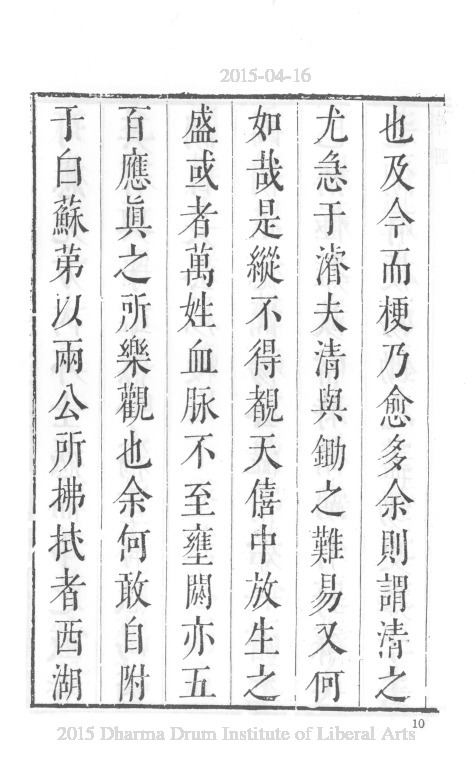 2015-04-16
也及今而梗乃愈多余則謂清之
尤急于濬夫清與鋤之難易又何
如哉是縱不得覩天僖中放生之
盛或者萬姓血脉不至壅閼亦五
百應眞之所樂觀也余何敢自附
于白蘇苐以兩公所拂拭者西湖
10
2015 Dharma Drum Institute of Liberal Arts